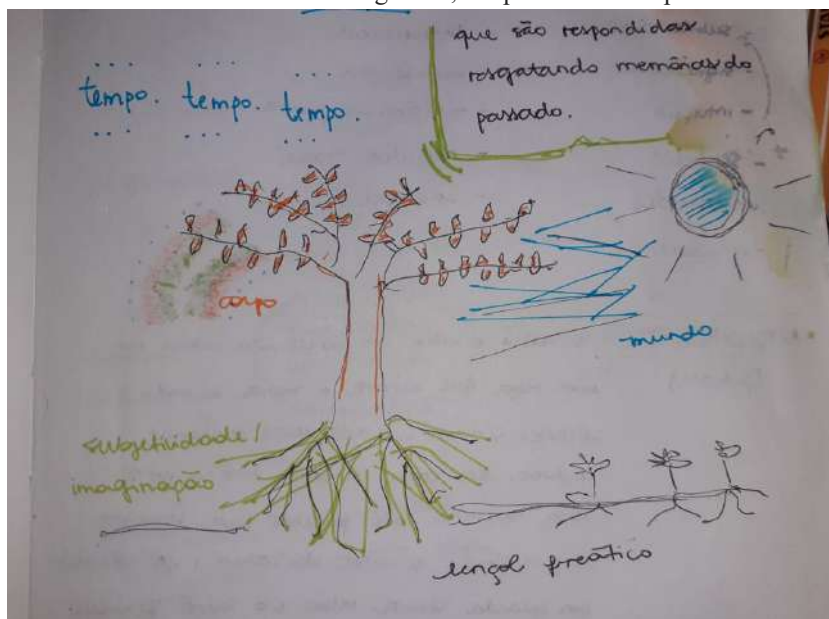 que são respondidas
resgatando memórias do
passado.
tempo. tempo. tempo.
corpo
mundo
subjetividade/
imaginação
lençol freático